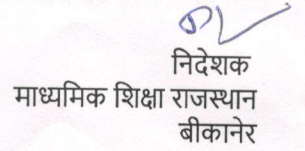 निदेशक
माध्यमिक शिक्षा राजस्थान
बीकानेर